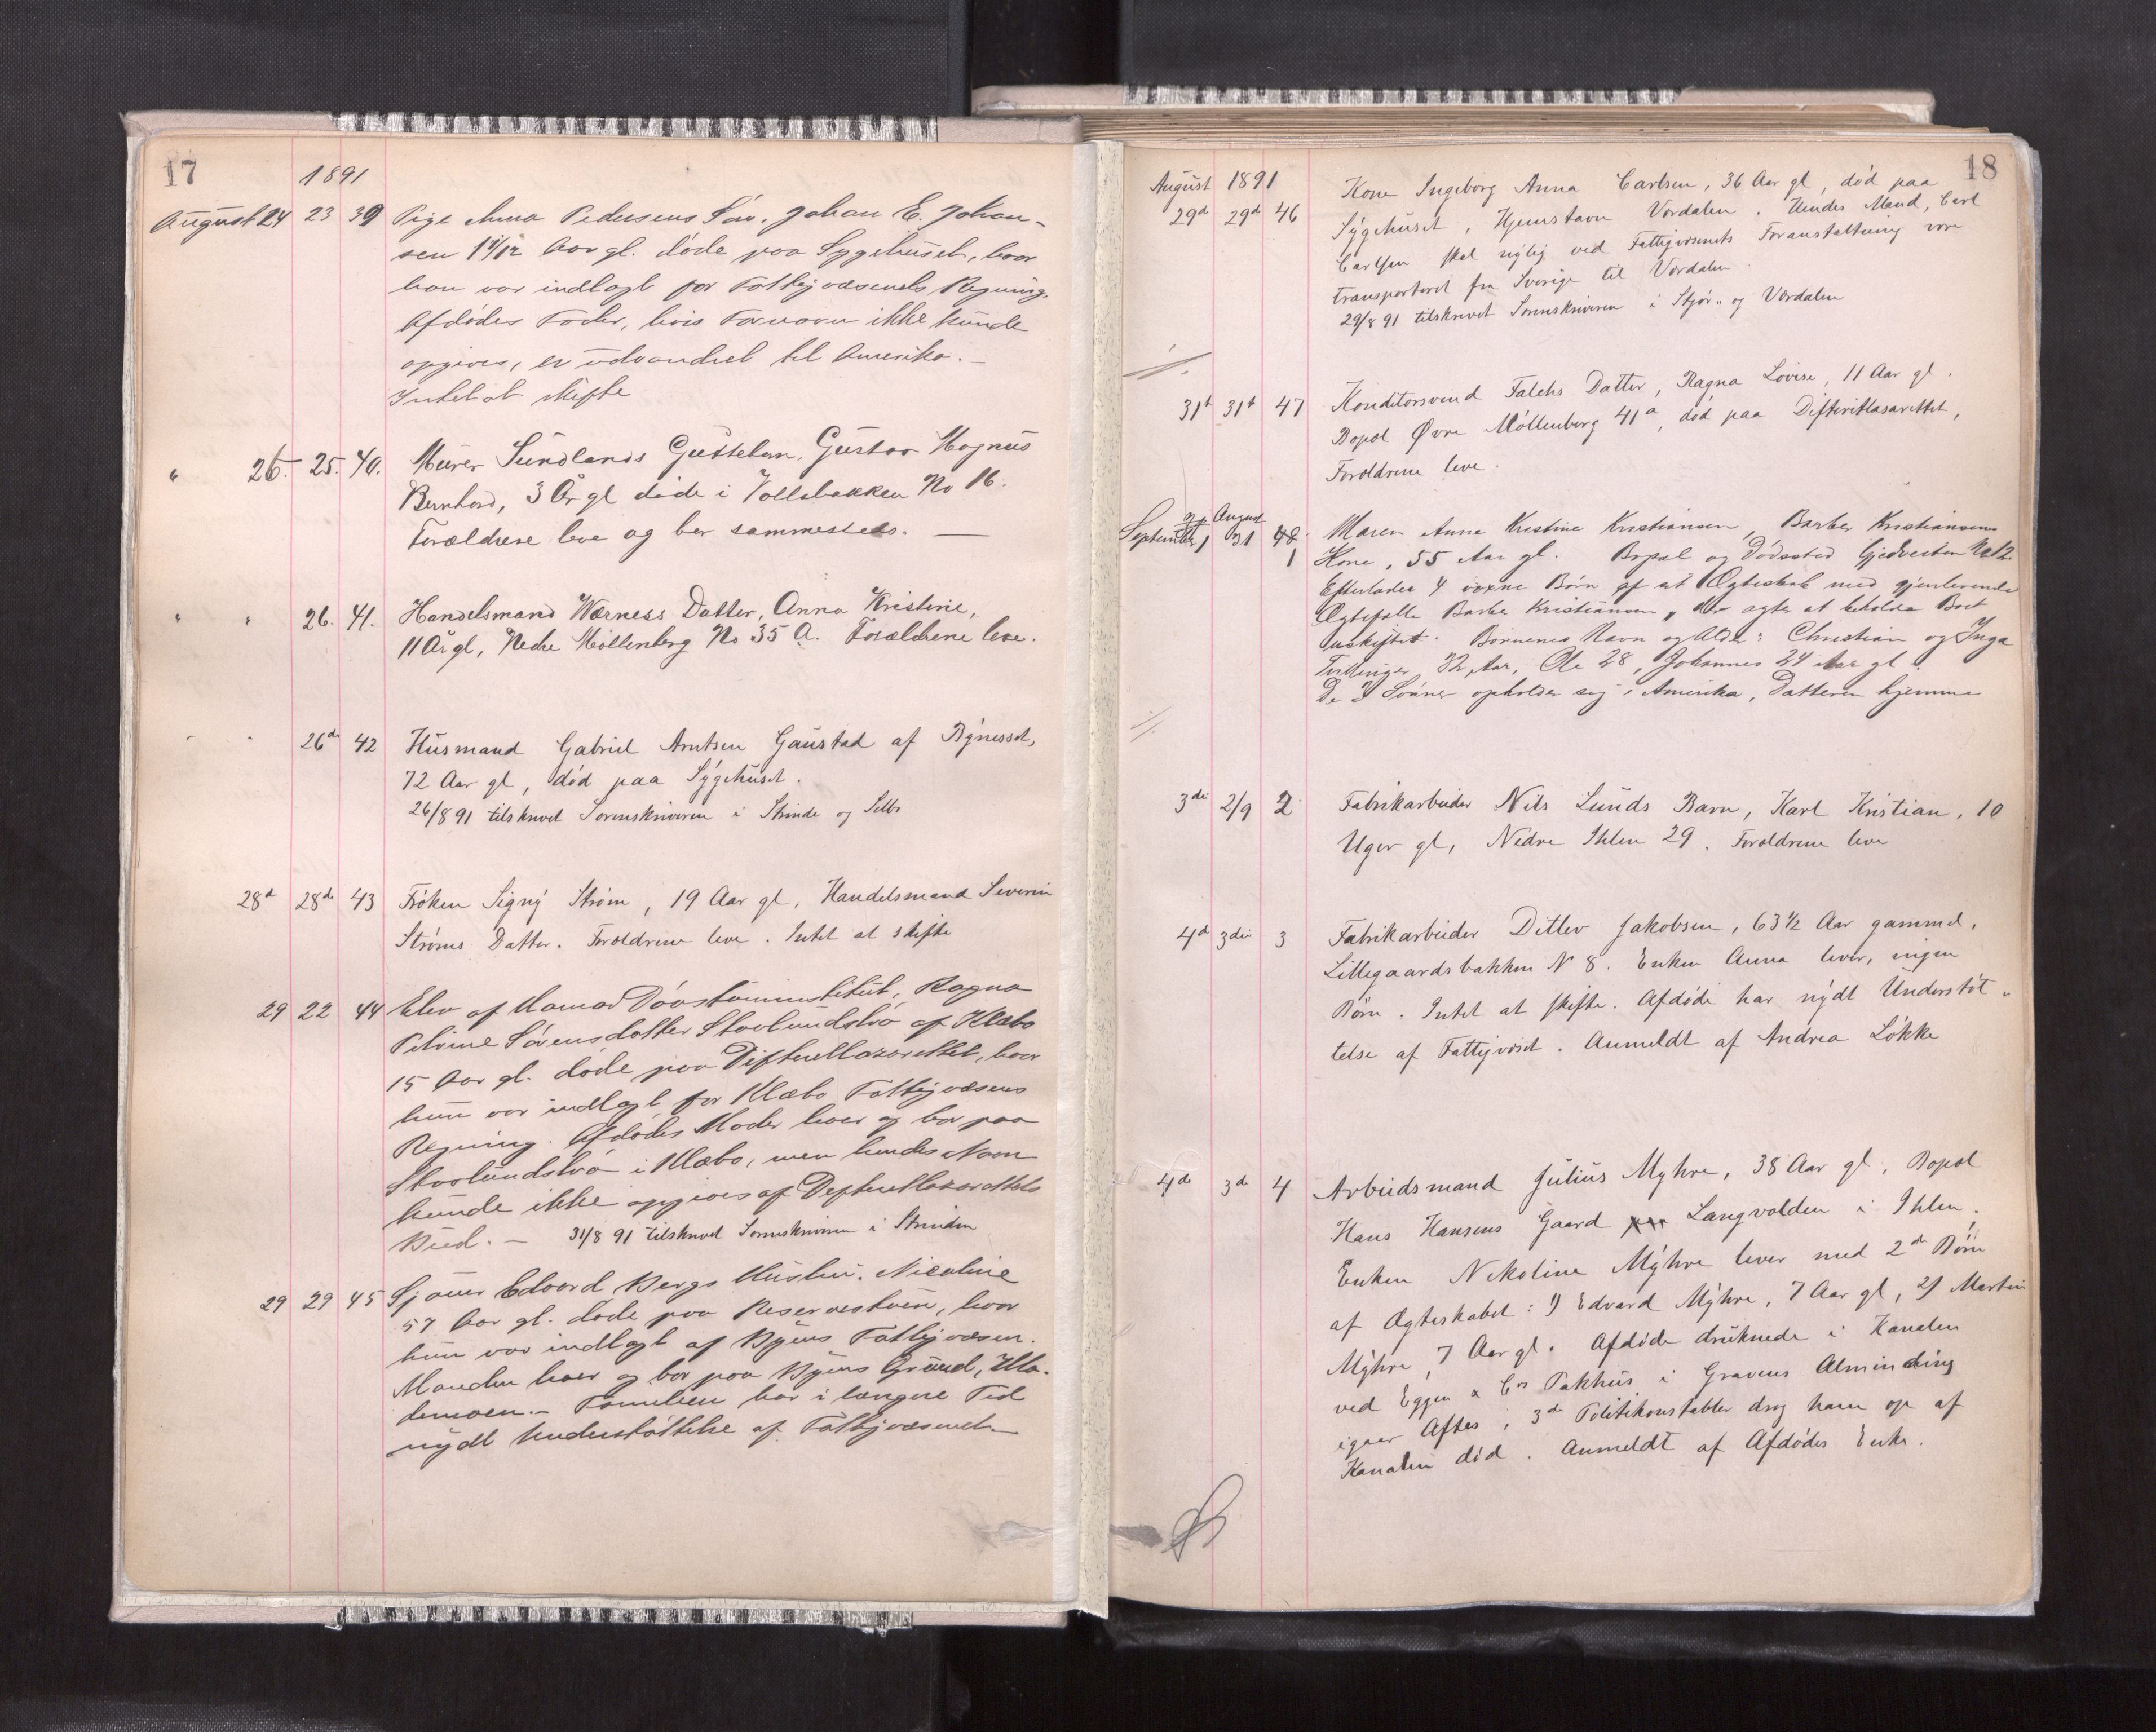 17
1891
August 24 23 39 Pige Anna Pedersens Søn, Johan E. Johan-
sen 1 1/12 Aar gl. døde paa Sygehuset, hvor
han var indlagt for Fattigvæsenets Regning.
Afdødes Fader, hvis Fornavn ikke kunde
opgives, er udvandret til Amerika. —
Intet at skifte
" 26. 25. 40. Murer Sundlands Guttebarn, Gustav Magnus
Bernhard, 3 År gl døde i Vollabakken No 16.
Forældrene leve og bor sammesteds. —
" " 26. 41. Handelsmand Værness Datter, Anna Kristine,
11 År gl, Nedre Møllenberg No 35 A. Forældrene leve.
" " 26de 42 Husmand Gabriel Arntsen Gaustad af Bynesset,
72 Aar gl, død paa Sygehuset.
26/8 91 tilskrevet Sorenskriveren i Strinde og Selbo
28d 28de 43 Frøken Signy Strøm, 19 Aar gl, Handelsmand Severin
Strøms Datter. Forældrene leve. Intet at skifte
29 22 44 Elev af Hamar Døvstuminstitut, Ragna
Petrine Sørensdatter af Klæbo
15 Aar gl. døde paa Difteritlazarettet, hvor
hun var indlagt for Klæbo Fattigvæsens
Regning. Afdødes Moder lever og bor paa
i Klæbo, men hendes Navn
kunde ikke opgives af Difteritlazarettets
Bud. — 31/8 91 tilskrevet Sorenskriveren i Strinden
29 29 45 Sjauer Edvard Bergs Hustru, Nicoline
57 Aar gl. døde paa Reservestuen, hvor
hun var indlagt af Byens Fattigvæsen.
Manden lever og bor paa Byens Grund, Hla-
demoen. — Familien har i længere Tid
nydt Understøttelse af Fattigvæsenet —
18
August 1891
29d 29d 46 Kone Ingeborg Anna Carlsen, 36 Aar gl, død paa
Sygehuset, Hjemstavn Værdalen. Hendes Mand, Carl
Carlsen skal nylig ved Fattigvæsenets Foranstaltning være
transporteret fra Sverige til Værdalen.
29/8 91 tilskrevet Sorenskriveren i Stjør- og Værdalen
31t 31t 47 Konditorsvend Falchs Datter, Ragna Lovise, 11 Aar gl.
Bopæl Øvre Møllenberg 41a, død paa Difteritlasarettet,
Forældrene leve.
August
September 1 31 48 Maren Anna Kristine Kristiansen, Barber Kristiansens
1 Kone, 55 Aar gl. Bopæl og Dødssted Gjedvesten No 12.
Efterlader 4 voxne Børn af sit Ægteskab med gjenlevende
Ægtefælle Barber Kristiansen, der agter at beholde Boet
uskiftet. Børnenes Navn og Alder: Christian og Inga
Tvillinger 32 Aar, Ole 28, Johannes 24 Aar gl.
De 3 Sønner opholder sig i Amerika, Datteren hjemme
3die 2/9 2 Fabrikarbeider Nils Lunds Barn, Karl Kristian, 10
Uger gl, Nedre Ihlen 29. Forældrene leve
4d 3die 3 Fabrikarbeider Ditlev Jakobsen, 63 1/2 Aar gammel,
Lillegaardsbakken N 8. Enken Anna lever, ingen
Børn. Intet at skifte. Afdøde har nydt Understøt-
telse af Fattigvæset. Anmeldt af Andrea Løkke
4de 3d 4 Arbeidsmand Julius Myhre, 38 Aar gl, Bopæl
Hans Hansens Gaard Langvolden i Ihlen.
Enken Nikoline Myhre lever med 2de Børn
af Ægteskabet: 1) Edvard Myhre, 7 Aar gl, 2) Martin
Myhre, 7 Aar gl. Afdøde druknede i Kanalen
ved Eggen & Cos Pakhus i Gravens Alminding
igaar Aftes, 3de Politikonstabler drog ham op af
Kanalen død. Anmeldt af Afdødes Enke.